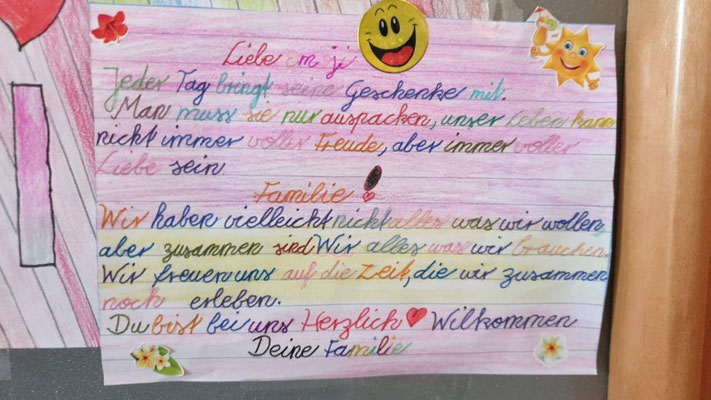 Liebe omi ji
Jeder Tag bringt seine Geschenke mit.
Man muss sie nur auspacken, unser Leben kann
nicht immer voller Freude, aber immer voller
Liebe sein
Familie!
Wir haben vielleicht nicht alles was wir wollen,
aber zusammen sind Wir alles was wir brauchen.
Wir freuen uns auf die Zeit, die wir zusammen
noch erleben.
Du bist bei uns Herzlich Wilkommen
Deine Familie